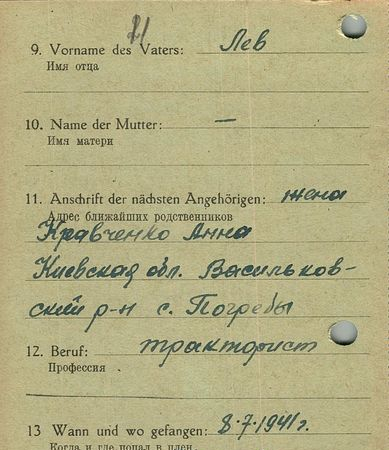 21
9. Vorname des Vaters: Лев
Имя отца
10. Name der Mutter: —
Имя матери
11. Anschrift der nächsten Angehörigen: жена
Адрес ближайших родственников
Кравченко Анна
Киевская обл. Васильков-
ский р-н с. Погребы
12. Beruf: тракторист
Профессия
13 Wann und wo gefangen: 8.7.1941 г.
Когда и где попал в плен.